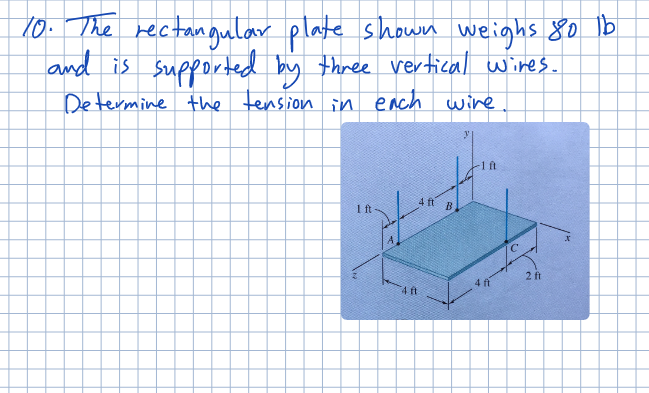 10. The rectangular plate shown weighs 80 lb
and is supported by three vertical wires.
Determine the tension in each wire.
y
1 ft
4 ft
B
1 ft
A
x
C
z
2 ft
4 ft
4 ft